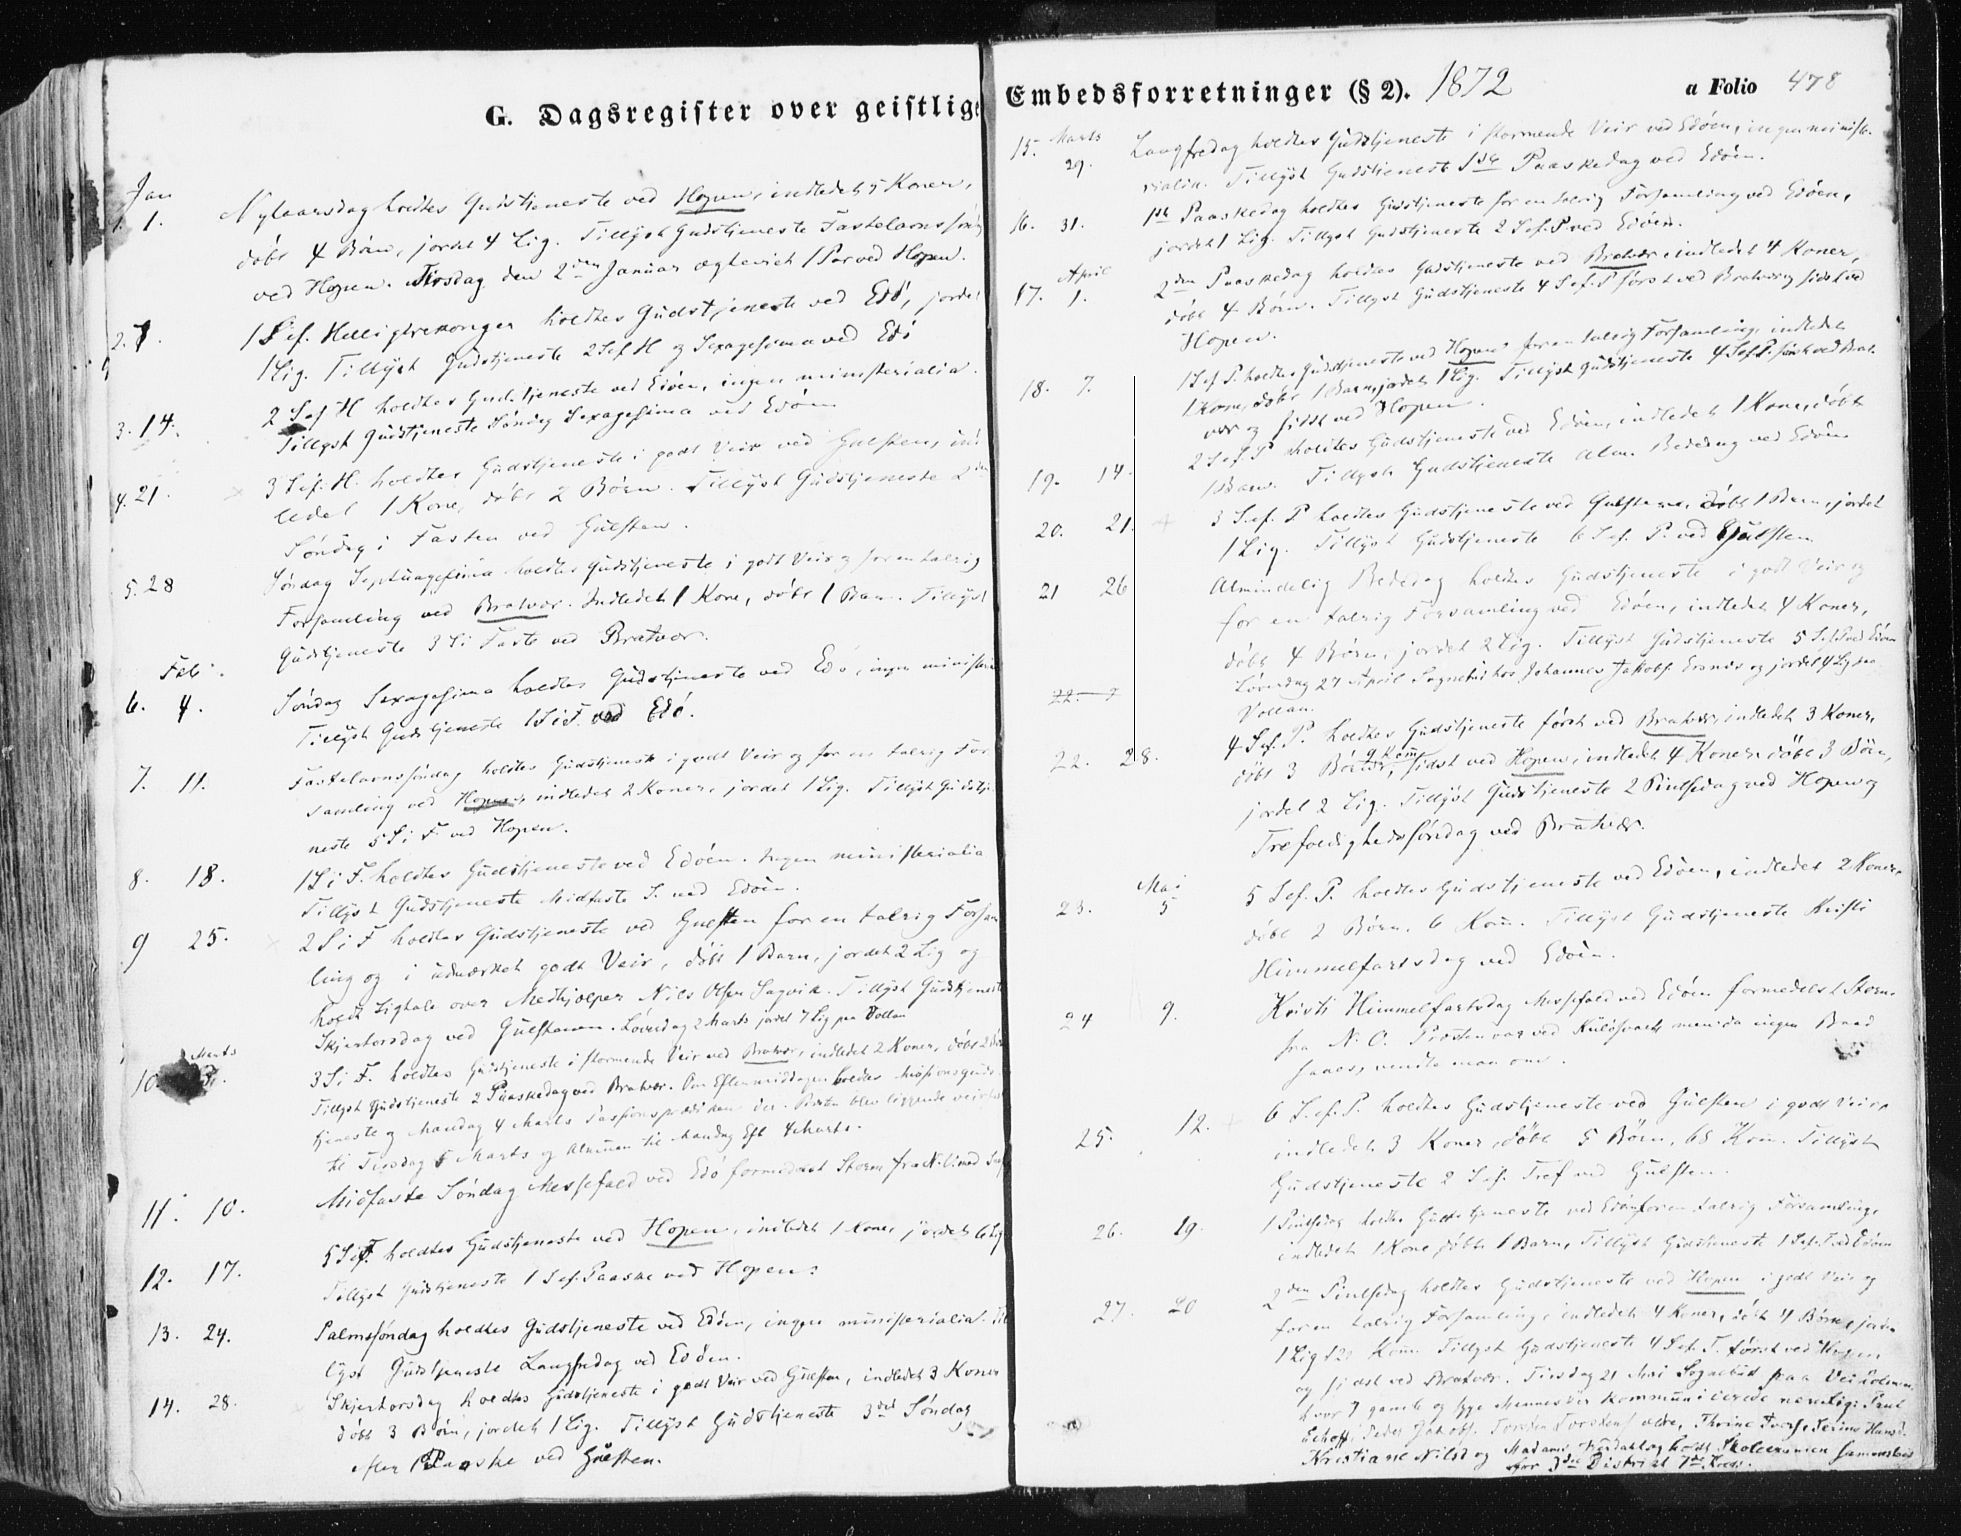 G. Dagsregister over geistlige Embedsforretninger (§ 2). 1872
a Folio 478
Jan
1. 1. Nytaarsdag holdtes Gudstjeneste ved Hopen, indledet 5 Koner,
døbt 4 Børn, jordet 4 Lig. Tillyst Gudstjeneste Fastelavnssøndag
ved Hopen. Tirsdag den 2den Januar ægteviet 1 Par ved Hopen.
2. 7. 1 S. ef. Helligtrekonger holdtes Gudstjeneste ved Edø, jordet
1 Lig. Tillyst Gudstjeneste 2 S ef H og Sexagesima ved Edø
3. 14. 2 S ef H holdtes Gudstjeneste ved Edøen, ingen ministerialia.
Tillyst Gudstjeneste Søndag Sexagesima ved Edøen
4. 21. 3 S. ef. H. holdtes Gudstjeneste i godt Veir ved Gulsten, ind
ledet 1 Kone, døbt 2 Børn. Tillyst Gudstjeneste 2den
Søndag i Fasten ved Gulsten.
5. 28 Søndag Septuagesima holdtes Gudstjeneste i godt Veir og for en talrig
Forsamling ved Bratvær. Indledet 1 Kone, døbt 1 Barn. Tillyst
Gudstjeneste 3 S i Faste ved Bratvær.
Feb.
6. 4. Søndag Sexagesima holdtes Gudstjeneste ved Edø, ingen ministeria
Tillyst Gudstjeneste 1 S i F. ved Edø.
7. 11. Fastelavnssøndag holdtes Gudstjeneste i godt Veir og for en talrig For
samling ved Hopen, indledet 2 Koner, jordet 1 Lig. Tillyst Gudstje
neste 5 S i F ved Hopen.
8. 18. 1 S i F. holdtes Gudstjeneste ved Edøen. Ingen ministerialia
Tillyst Gudstjeneste Midfaste S. ved Edøen.
9 25. 2 S i F holdtes Gudstjeneste ved Gulsten for en talrig Forsam
ling og i udmærket godt Veir, døbt 1 Barn, jordet 2 Lig og
holdt Ligtale over Medhjælper Nils Olsen Sagvik. Tillyst Gudstjeneste
Skjertorsdag ved Gulstenen. Løverdag 2 Marts jordet 7 Lig paa Vollan
Marts
10. 3. 3 S i F. holdtes Gudstjeneste i stormende Veir ved Bratvær, indledet 2 Koner, døbt 2 Børn
Tillyst Gudstjeneste 2 Paaskedag ved Bratvær. Om Eftermiddagen holdtes Missionsguds
tjeneste og Mandag 4 Marts Passionsprædiken der. blev liggende
til Tirsdag 5 Marts og til Mandag Eft 4 Marts.
11. 10. Midfaste Søndag Messefald ved Edø formedelst Storm fra N. V. med
12. 17. 5 S i F. holdtes Gudstjeneste ved Hopen, indledet 1 Kone, jordet 6 Lig
Tillyst Gudstjeneste 1 S. ef. Paaske ved Hopen.
13. 24. Palmesøndag holdtes Gudstjeneste ved Edøen, ingen ministerialia. Til
lyst Gudstjeneste Langfredag ved Edøen.
14. 28. Skjertorsdag holdtes Gudstjeneste i godt Veir ved Gulsten, indledet 3 Koner
døbt 3 Børn, jordet 1 Lig. Tillyst Gudstjeneste 3die Søndag
efter Paaske ved Gulsten.
Marts
15. 29. Langfredag holdtes Gudstjeneste i stormende Veir ved Edøen, ingen ministe
rialia. Tillyst Gudstjeneste 1ste Paaskedag ved Edøen.
16. 31. 1ste Paaskedag holdtes Gudstjeneste for en talrig Forsamling ved Edøen,
jordet 1 Lig. Tillyst Gudstjeneste 2 S. ef. P ved Edøen.
April
17. 1. 2den Paaskedag holdtes Gudstjeneste ved Bratvær, indledet 4 Koner,
døbt 4 Børn. Tillyst Gudstjeneste 4 S. ef. P først ved Bratvær og sidst ved
Hopen.
18. 7. 1 S ef. P. holdtes Gudstjeneste ved Hopen for en talrig Forsamling, indledet
1 Kone, døbt 1 Barn, jordet 1 Lig. Tillyst Gudstjeneste 4 S. ef. P. først ved Brat
vær og sidst ved Hopen.
19. 14. 2 S. ef. P holdtes Gudstjeneste ved Edøen, indledet 1 Kone, døbt
1 Barn. Tillyst Gudstjeneste Alm. Bededag ved Edøen
20. 21. 3 S. ef. P holdtes Gudstjeneste ved Gulstenen, døbt 1 Barn, jordet
1 Lig. Tillyst Gudstjeneste 6 S ef. P. ved Gulsten
21 26 Almindelig Bededag holdtes Gudstjeneste i godt Veir og
for en talrig Forsamling ved Edøen, indledet 4 Koner,
døbt 4 Børn, jordet 2 Lig. Tillyst Gudstjeneste 5 S. ef. P ved Edøen
22 7 Løverdag 27 April Sognebud hos Johannes Jakobs. og jordet 4 Lig paa
Vollan.
22. 28. 4 S. ef. P. holdtes Gudstjeneste først ved Bratvær, indledet 3 Koner,
døbt 3 Børn, 9 Kom, sidst ved Hopen, indledet 4 Koner, døbt 3 Børn,
jordet 2 Lig. Tillyst Gudstjeneste 2 Pintsedag ved Hopen og
Trefoldighedssøndag ved Bratvær.
Mai
23. 5 5 S. ef. P. holdtes Gudstjeneste ved Edøen, indledet 2 Koner,
døbt 2 Børn. 6 Kom. Tillyst Gudstjeneste Kristi
Himmelfartsdag ved Edøen.
24 9. Kristi Himmelfartsdag Messefald ved Edøen formedelst Storm
fra N. O. Præsten var ved men da ingen Baad
saaes, vendte man om.
25. 12. 6 S. ef. P. holdtes Gudstjeneste ved Gulsten i godt Veir,
indledet 3 Koner, døbt 5 Børn, 68 Kom. Tillyst
Gudstjeneste 2 S. ef. Tref ved Gulsten.
26. 19. 1 Pintsedag holdtes Gudstjeneste ved Edøen for en talrig Forsamling,
indledet 1 Kone, døbt 1 Barn, Tillyst Gudstjeneste 1 S. ef. T. ved Edøen
27. 20 2den Pintsedag holdtes Gudstjeneste ved Hopen i godt Veir og
for en talrig Forsamling, indledet 4 Koner, døbt 4 Børn, jordet
1 Lig 120 Kom. Tillyst Gudstjeneste 4 S. ef. T. først ved Hopen
og sidst ved Bratvær. Tirsdag 21 Mai Sognebud paa
hvor 7 gamle og syge Mennesker kommunicerede nemlig: Paul
Peder Jakobs. Torsten Torstens. Thrine
Kristiane Nilsd og Madame holdt Skoleexamen sammesteds
for 3die District 1ste Kreds.